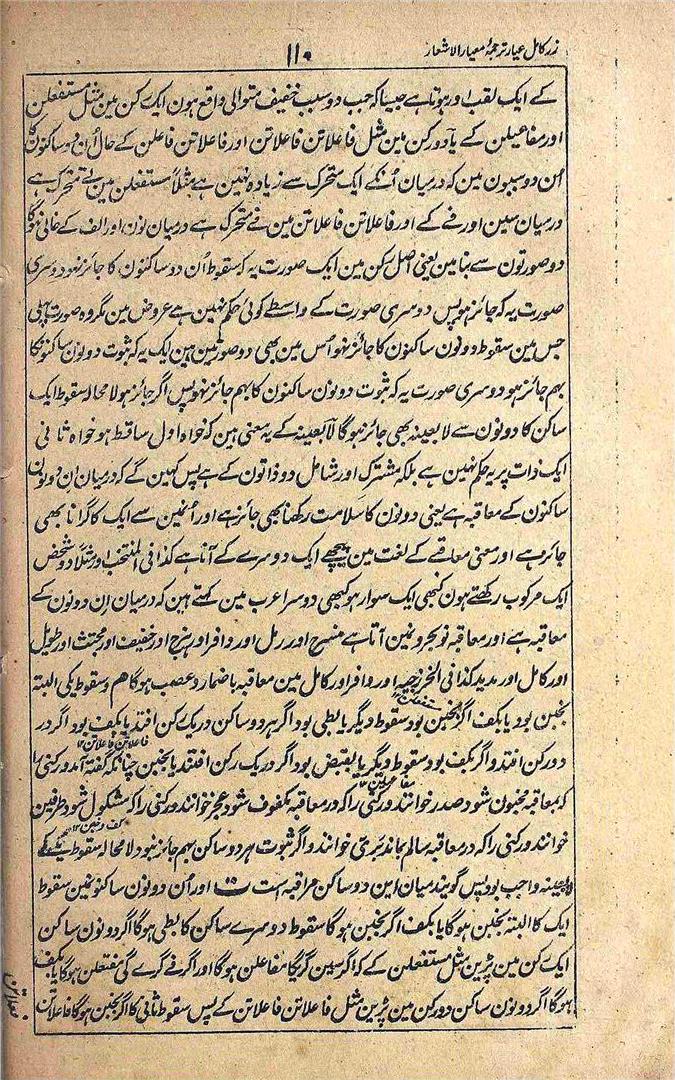 زر کامل عیار ترجمۂ معیار الاشعار
۱۱۰
کے ایک لقب اور ہوتا ہے جیسا کہ جب دو سبب خفیف متوالی واقع ہون ایک رکن مین مثل مستفعلن
اور مفاعیلن کے یا دو رکن مین مثل فاعلاتن فاعلاتن اور فاعلاتن فاعلن کے حال اُن دو ساکنون کا
اُن دو سببون مین کہ درمیان اُنکے ایک متحرک سے زیادہ نہین ہے مثلاً مستفعلن مین تے متحرک ہے
درمیان سین اور فے کے اور فاعلاتن فاعلاتن مین فے متحرک ہے درمیان نون اور الف کے خالی نہوگا
دو صورتون سے بنا مین یعنی اصل رکن مین ایک صورت یہ کہ سقوط اُن دو ساکنون کا جائز نہو دوسری
صورت یہ کہ جائز ہو پس دوسری صورت کے واسطے کوئی حکم نہین ہے عروض مین مگر وہ صورت پہلی
جس مین سقوط دونون ساکنون کا جائز نہو اُس مین بھی دو صورتین ہین ایک یہ کہ ثبوت دونون ساکنونکا
بہم جائز ہو دوسری صورت یہ کہ ثبوت دونون ساکنون کا بہم جائز نہو پس اگر جائز ہو لا محالہ سقوط ایک
ساکن کا دونون سے لا بعینہ بھی جائز ہوگا لا بعینہ کے یہ معنی ہین کہ خواہ اول ساقط ہو خواہ ثانی
ایک ذات پر یہ حکم نہین ہے بلکہ مشترک اور شامل دو ذاتون کے ہے پس کہین گے کہ درمیان اِن دونون
ساکنون کے معاقبہ ہے یعنی دونون کا سلامت رکھنا بھی جائز ہے اور اُنمین سے ایک کا گرانا بھی
جائز ہے اور معنی معاقبے کے لغت مین پیچھے ایک دوسرے کے آنا ہے کذا فی المنتخب اور مثلاً دو شخص
ایک مرکوب رکھتے ہون کبھی ایک سوار ہو کبھی دوسرا عرب مین کہتے ہین کہ درمیان اِن دونون کے
معاقبہ ہے اور معاقبہ نو بحرونمین آتا ہے منسرح اور رمل اور وافر اور ہزج اور خفیف اور مجتث اور طویل
اور کامل اور مدید کذا فی الخزرجیہ اور وافر اور کامل مین معاقبہ باضمار و عصب ہوگا هم و سقوط یکی البتہ
بخبن بود یا بکف اگر بخبن بود سقوط دیگر یا بطی بود اگر ہر دو ساکن در یک رکن افتد یا بکف بود اگر در
دو رکن افتد و اگر بکف بود سقوط دیگر یا بقبض بود اگر در یک رکن افتد یا بخبن چنانکہ گفتہ آمد و رکنی را
کہ بمعاقبہ مخبون شود صدر خوانند و رکنی را کہ در معاقبہ مکفوف شود عجز خوانند و رکنی را کہ مشکول شود طرفین
خوانند و رکنی را کہ در معاقبہ سالم بماند بَرِی خوانند و اگر ثبوت ہر دو ساکن بہم جائز نبود لا محالہ سقوط یکے
لا بعینہ واجب بود پس گویند میان این دو ساکن مراقبہ است ت اور اُن دونون ساکنونمین سقوط
ایک کا البتہ بخبن ہوگا یا بکف اگر بخبن ہوگا سقوط دوسرے ساکن کا بطی ہوگا اگر دونون ساکن
ایک رکن مین پڑین مثل مستفعلن کے کہ اگر سین گریگا مفاعلن ہوگا اور اگر فے گرے گی مفتعلن ہوگا یا بکف
ہوگا اگر دونون ساکن دو رکن مین پڑین مثل فاعلاتن فاعلاتن کے پس سقوط ثانی کا اگر بخبن ہوگا فاعلاتن